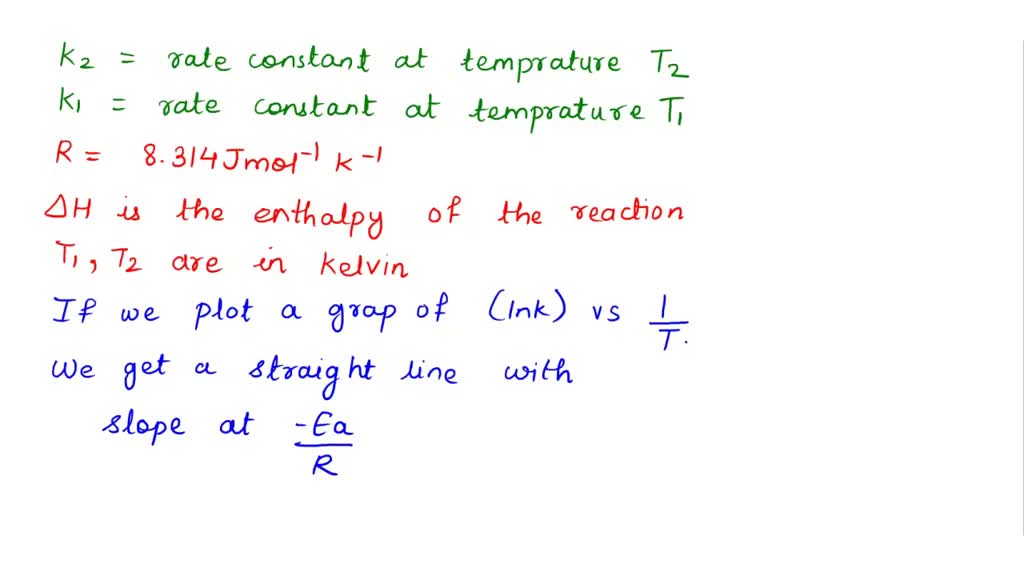 K2 = rate constant at temprature T2
K1 = rate constant at temprature T1
R = 8.314 Jmol⁻¹ K⁻¹
ΔH is the enthalpy of the reaction
T1, T2 are in Kelvin
If we plot a grap of (lnk) vs 1/T.
We get a straight line with
slope at -Ea/R